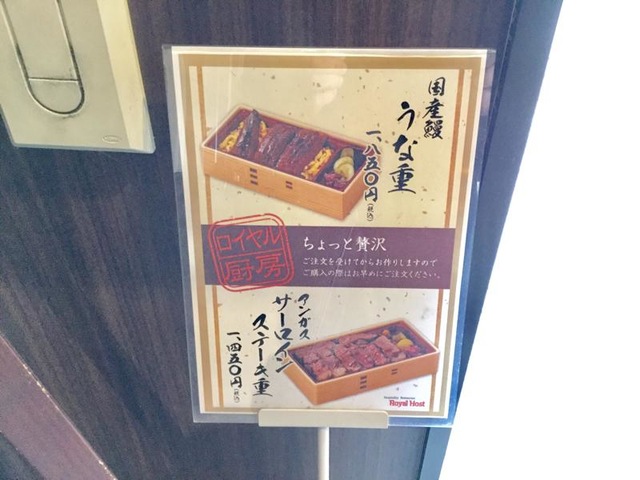 国産鰻
うな重
一、八五〇円(税込)
ロイヤル
厨房
ちょっと贅沢
ご注文を受けてからお作りしますので
ご購入の際はお早めにご注文ください。
アンガス
サーロイン
ステーキ重
一、四五〇円(税込)
Royal Host